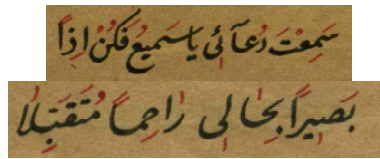 سَمِعْتَ دُعَآئِی یَا سَمِیعُ فَکُنْ اِذًا
بَصِیرًا بِحَالِی رَاحِمًا مُتَقَبِّلَا